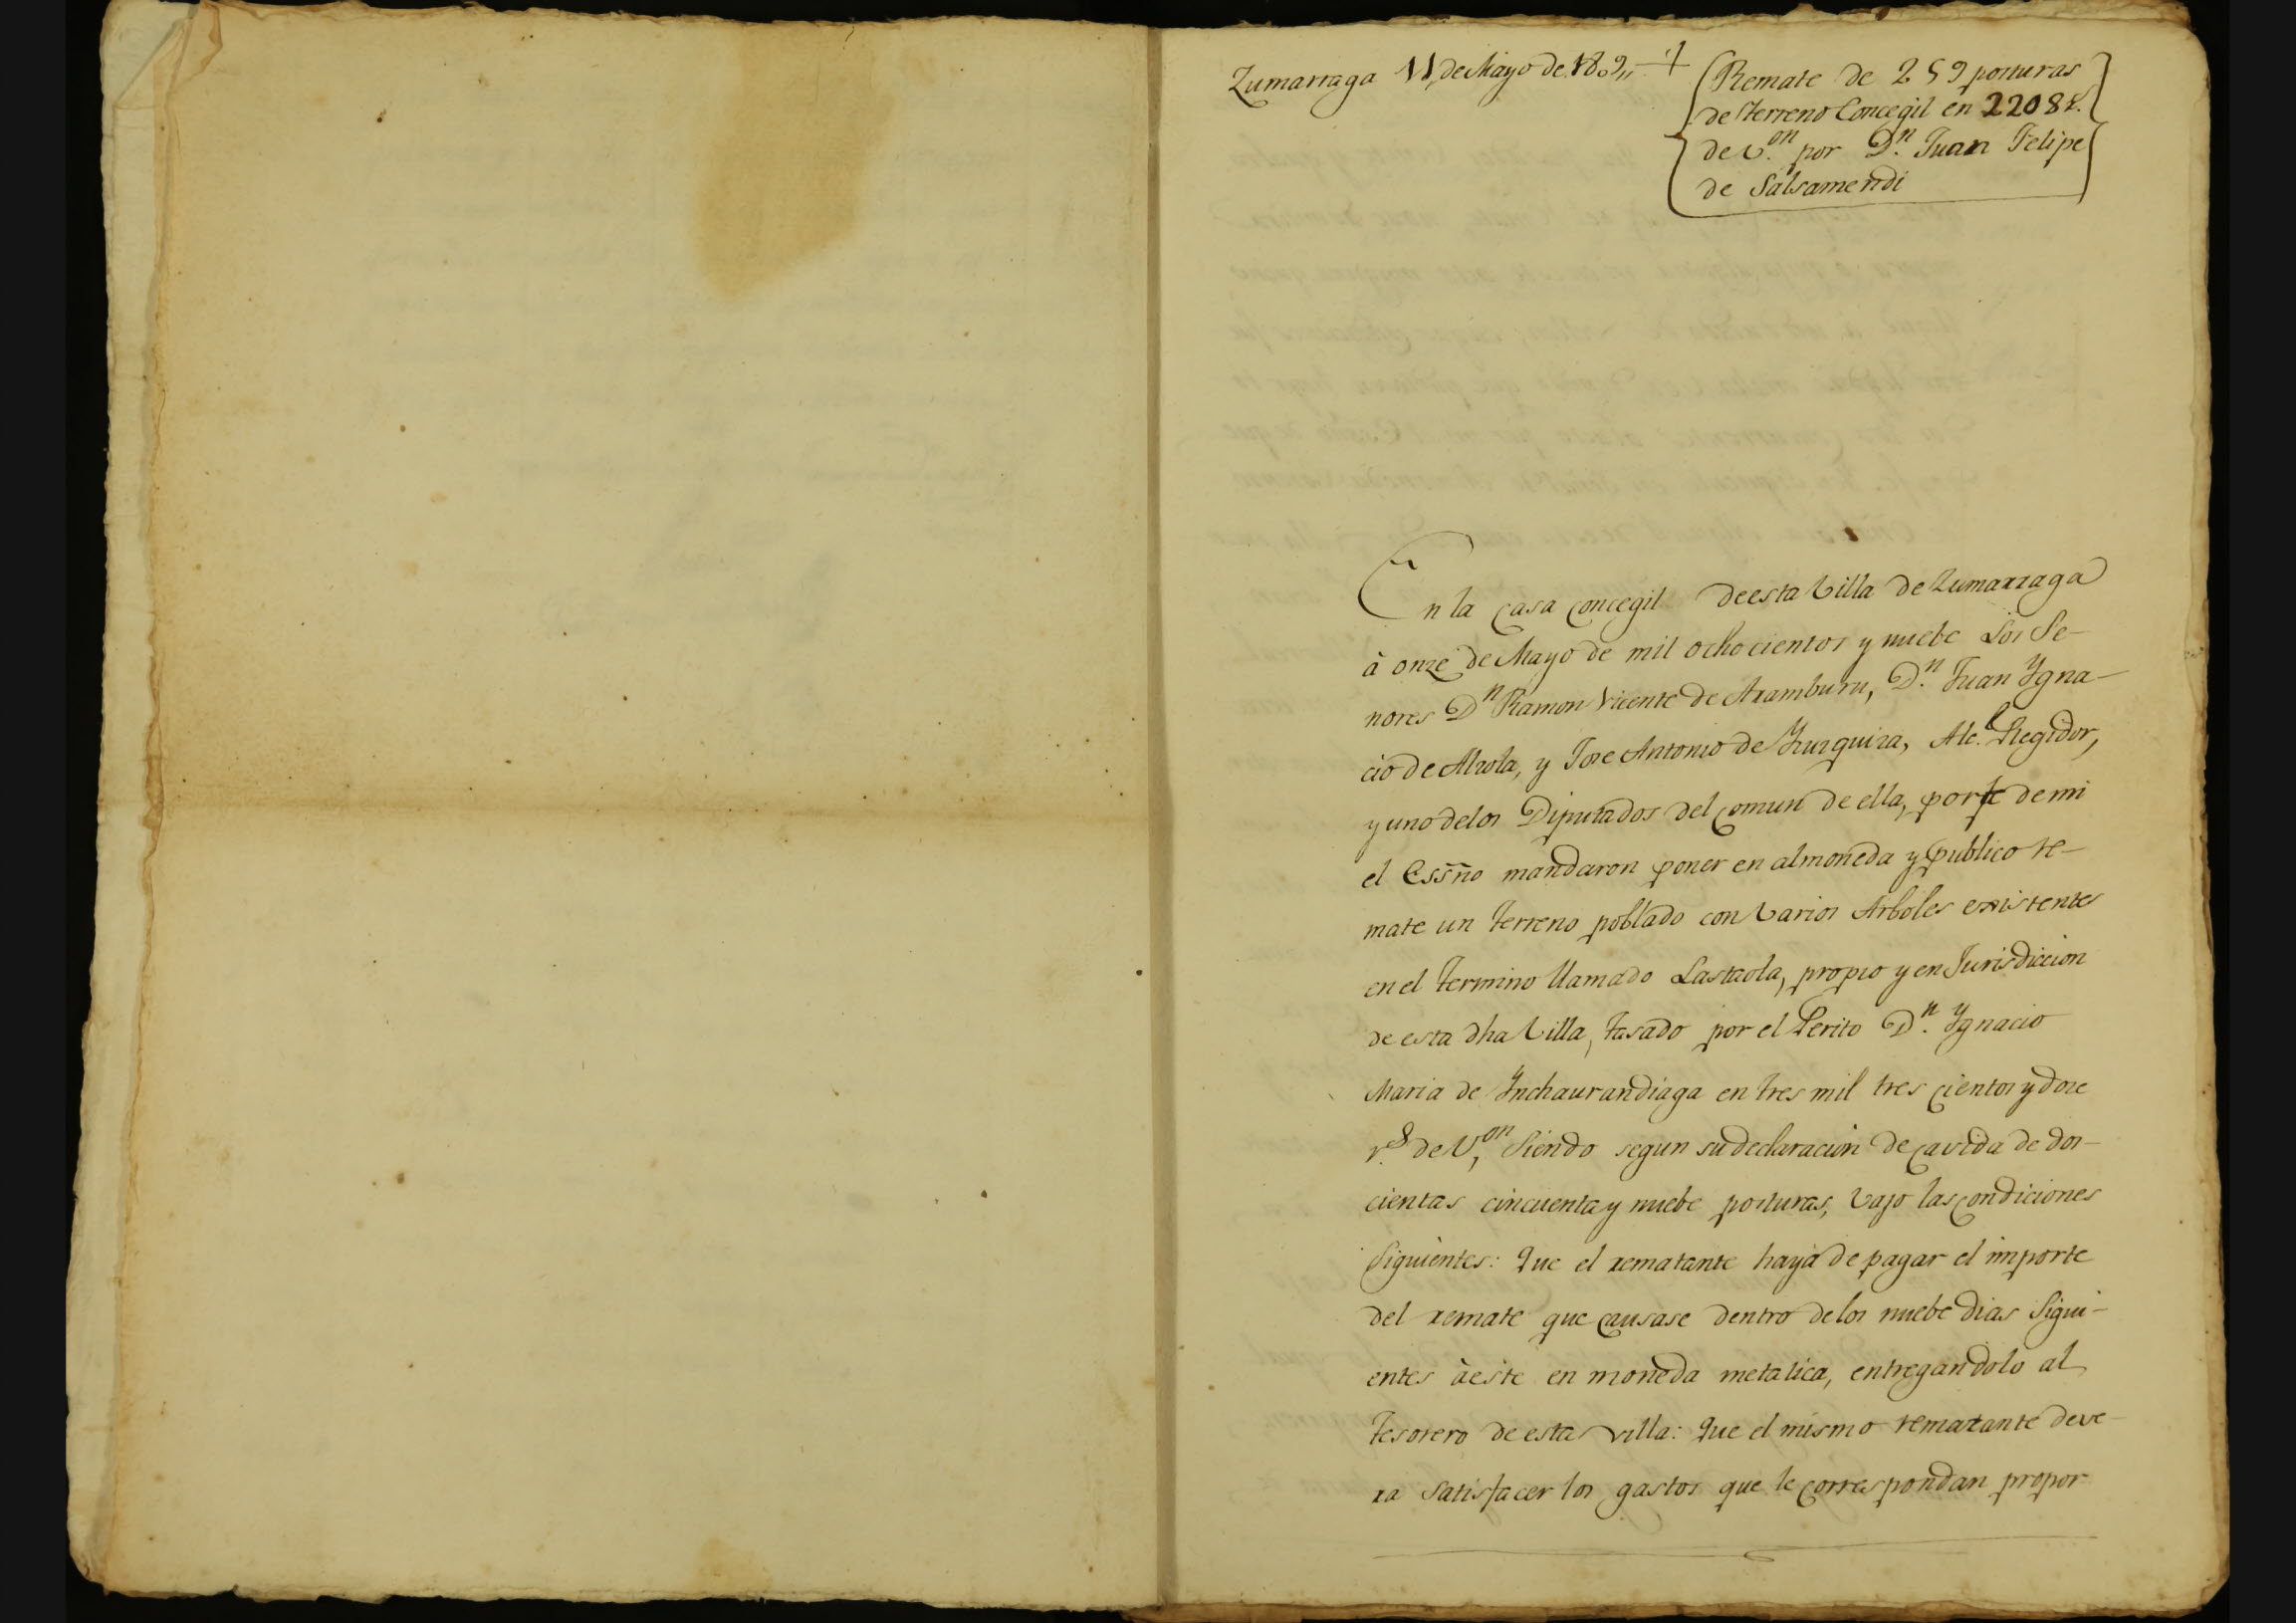 Zumarraga 11 de Mayo de 1809,, †
Remate de 259 posturas
de terreno Concegil en 2208 r.
de v.on por D.n Juan Felipe
de Salsamendi
En la casa concegil de esta Villa de Zumarraga
à onze de Mayo de mil ochocientos y nuebe Los Se-
nores D.n Ramon Vicente de Aramburu, D.n Juan Ygna-
cio de Alzola, y Jose Antonio de Yzuzquiza, Alc.l Regidor,
y uno de los Diputados del comun de ella, por fe de mi
el Essño mandaron poner en almoneda y publico re-
mate un terreno poblado con varios Arboles existentes
en el termino llamado Lastaola, propio y en Jurisdiccion
de esta dha Villa, tasado por el Perito D.n Ygnacio
Maria de Ynchaurandiaga en tres mil tres cientos y doze
r.s de V.on, Siendo segun su declaracion de cavida de dos-
cientas cincuenta y nuebe posturas, vajo las condiciones
Siguientes: Que el rematante haya de pagar el importe
del remate que causase dentro de los nuebe dias Sigui-
entes à este en moneda metalica, entregandolo al
tesorero de esta villa: Que el mismo rematante deve-
ra Satisfacer los gastos que le correspondan propor